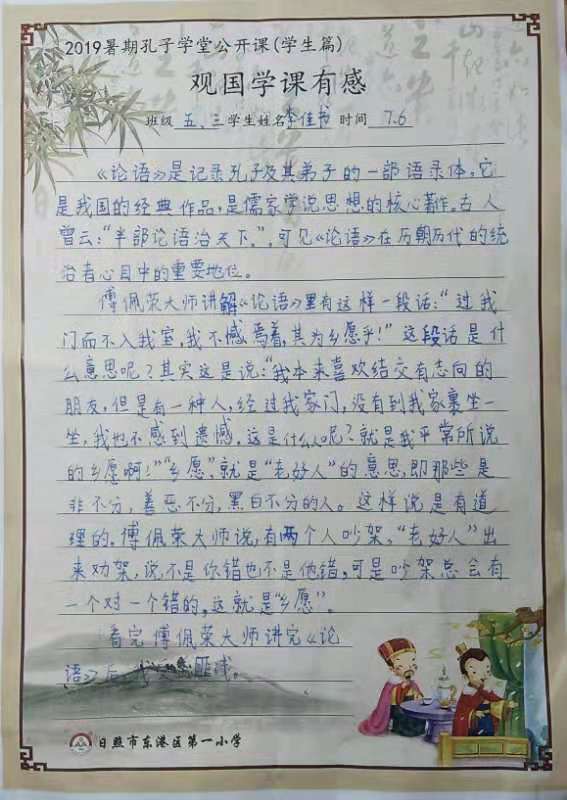 2019暑期孔子学堂公开课(学生篇)
观国学课有感
班级 五、三 学生姓名 李佳书 时间 7.6
《论语》是记录孔子及其弟子的一部语录体,它
是我国的经典作品,是儒家学说思想的核心著作。古人
曾云:“半部论语治天下。”,可见《论语》在历朝历代的统
治者心目中的重要地位。
傅佩荣大师讲解《论语》里有这样一段话:“过我
门而不入我室,我不憾焉着,其为乡愿乎!”这段话是什
么意思呢?其实这是说:“我本来喜欢结交有志向的
朋友,但是有一种人,经过我家门,没有到我家裏坐一
坐,我也不感到遗憾。这是什么人呢?就是我平常所说
的乡愿啊!”“乡愿”,就是“老好人”的意思,即那些是
非不分,善恶不分,黑白不分的人。这样说是有道
理的。傅佩荣大师说,有两个人吵架,“老好人”出
来劝架,说不是你错也不是他错,可是吵架总会有
一个对一个错的,这就是“乡愿”。
看完傅佩荣大师讲完《论
语》后,我
日照市东港区第一小学